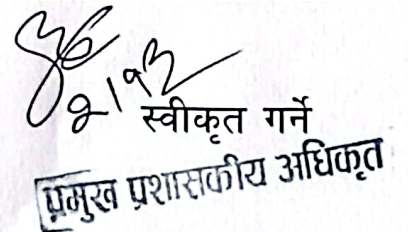 २।१२
स्वीकृत गर्ने
प्रमुख प्रशासकीय अधिकृत